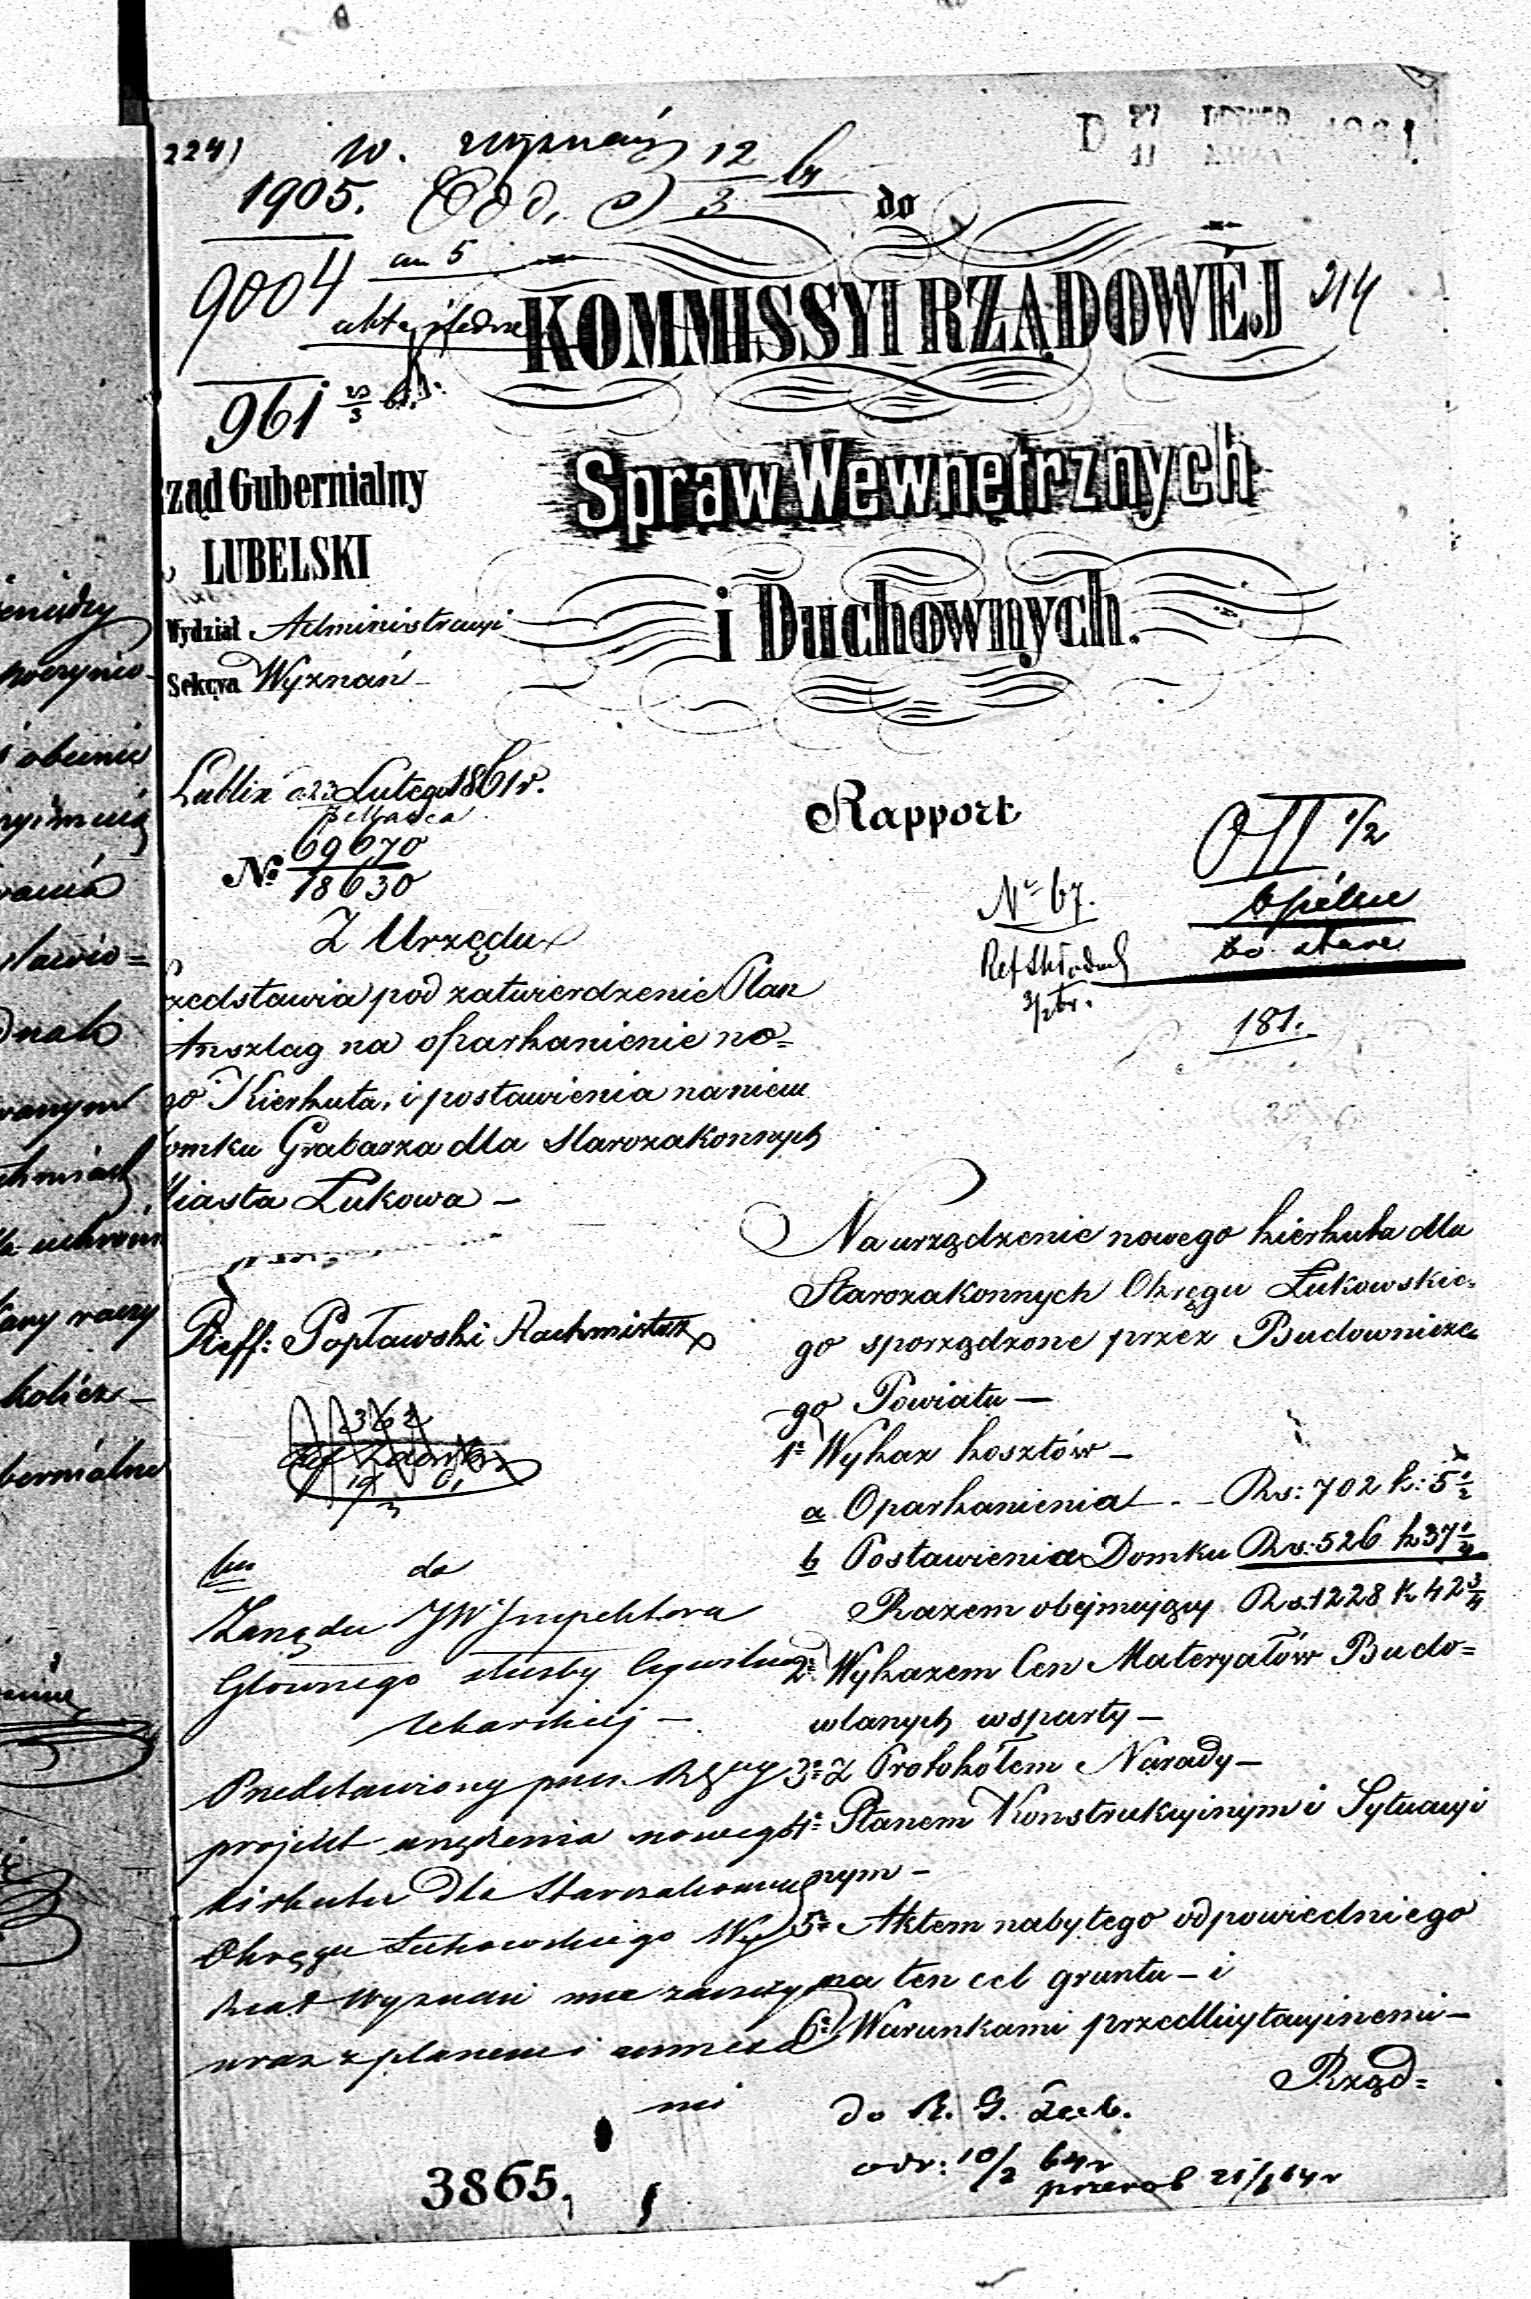 224)
w. wyznań 12/3
1905.
do
9004
akta
KOMMISSYI RZĄDOWÉJ
214
961
Spraw Wewnętrznych
i Duchownych.
ząd Gubernialny
LUBELSKI
Wydział Administracyi
Sekcya Wyznań
Lublin d. 23 Lutego 1861 r.
No 69670
18630
Rapport
No 67.
181.
Z Urzędu
zedstawia pod zatwierdzenie Plan
Anszlag na oparkanienie no=
go Kierkuta, i postawienia na niem
omku Grabarza dla Starozakonnych
Miasta Łukowa —
Reff: Popławski Rachmistrz
362
Na urządzenie nowego kierkuta dla
Starozakonnych Okręgu Łukowskie=
go sporządzone przez Budownicze=
go Powiatu —
1o Wykaz kosztów —
a Oparkanienia — Rs: 702 k: 5 1/2
b Postawienia Domku Rs: 526 k 37 1/4
Razem obejmujący Rs. 1228 k 42 3/4
2o Wykazem Cen Materyałów Budo=
wlanych wsparty —
3o Z Protokółem Narady —
4o Planem Konstrukcyinym i Sytuacyi
nym —
5o Aktem nabytego odpowiedniego
na ten cel gruntu — i
6o Warunkami przedlicytacyinemi —
Rząd=
do
Zarządu JW Inspektora
Głównego służby Cywilnej
Lekarskiej —
Przedstawiony przez
projekt urządzenia nowego
kirkutu dla Starozakonnych
Okręgu Łukowskiego Wy
dział Wyznań ma zaszczyt
wraz z planem i
mi
do R. G. Lub.
odr: 10/2 64 r
3865